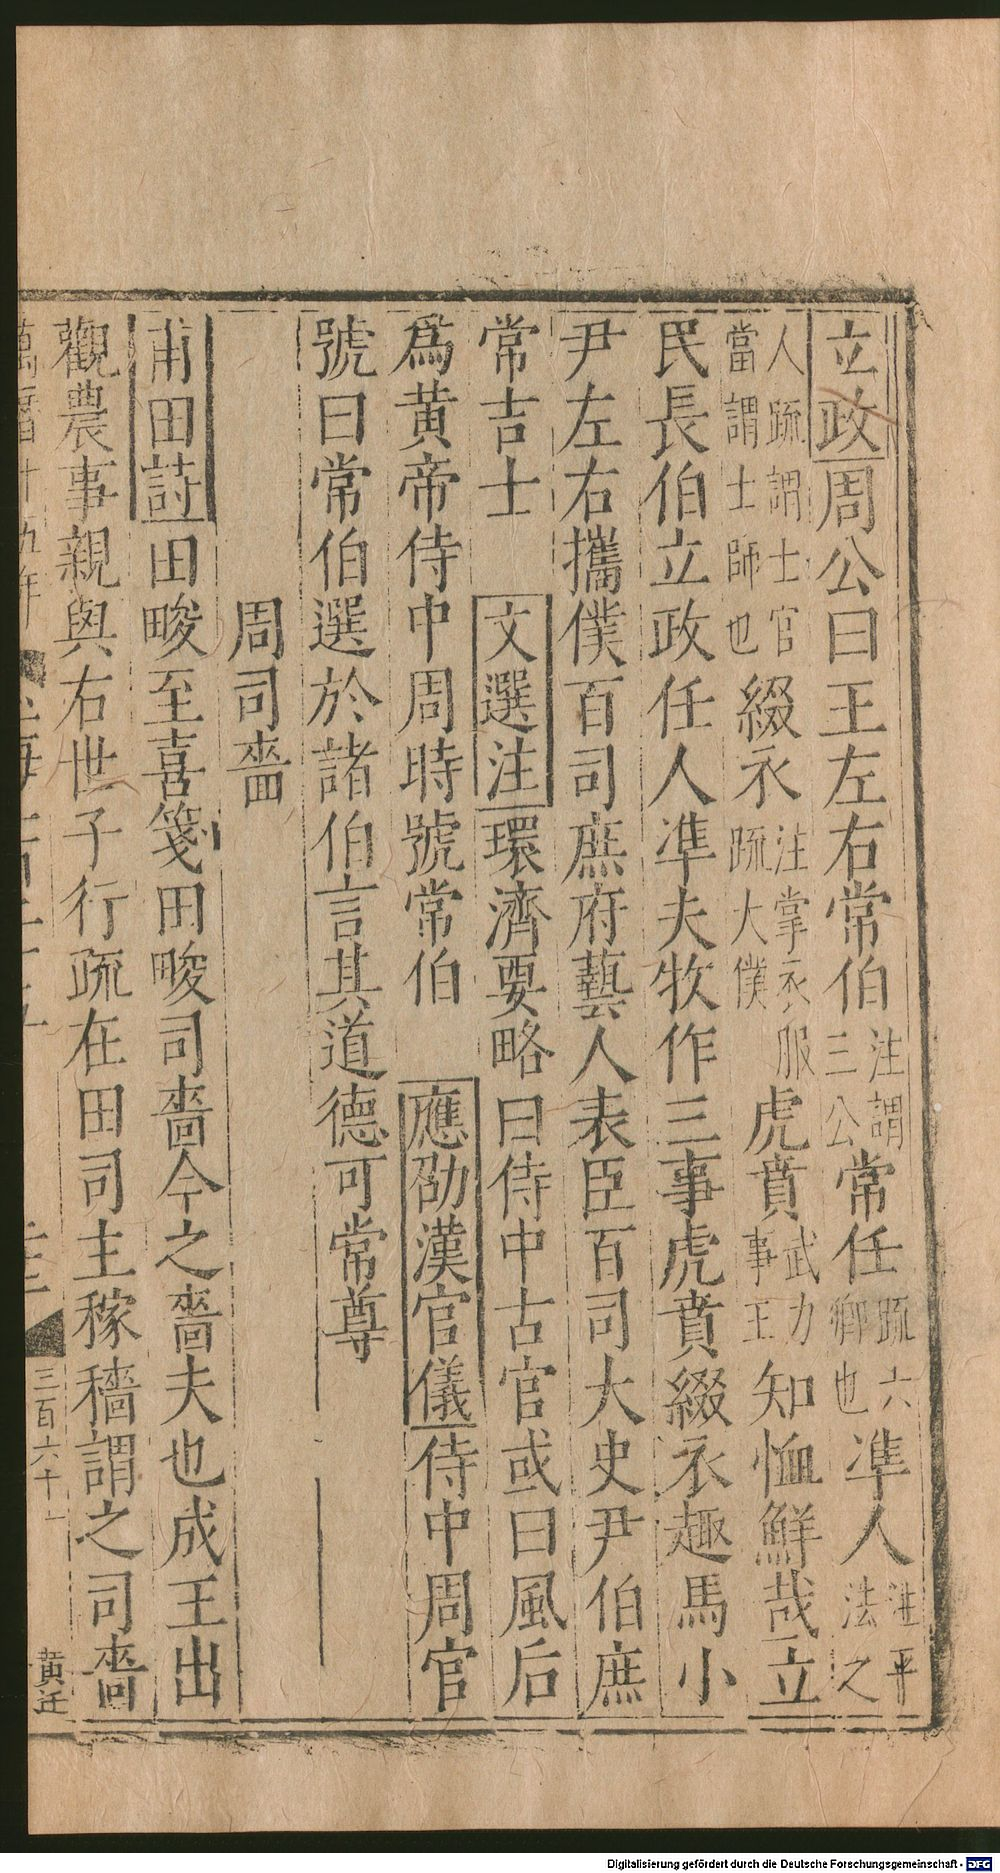 立政周公曰王左右常伯注謂三公常任疏六卿也準人注平法之
人疏謂士官當謂士師也綴衣注掌衣服疏大僕虎賁武力事王知恤鮮哉立
民長伯立政任人準夫牧作三事虎賁綴衣趣馬小
尹左右攜僕百司庶府藝人表臣百司大史尹伯庶
常吉士 文選注環濟要略曰侍中古官或曰風后
為黃帝侍中周時號常伯 應劭漢官儀侍中周官
號曰常伯選於諸伯言其道德可常尊
周司嗇
甫田詩田畯至喜箋田畯司嗇今之嗇夫也成王出
觀農事親與右世子行疏在田司主稼穡謂之司嗇
三百六十一
黃迁
Digitalisierung gefördert durch die Deutsche Forschungsgemeinschaft - DFG